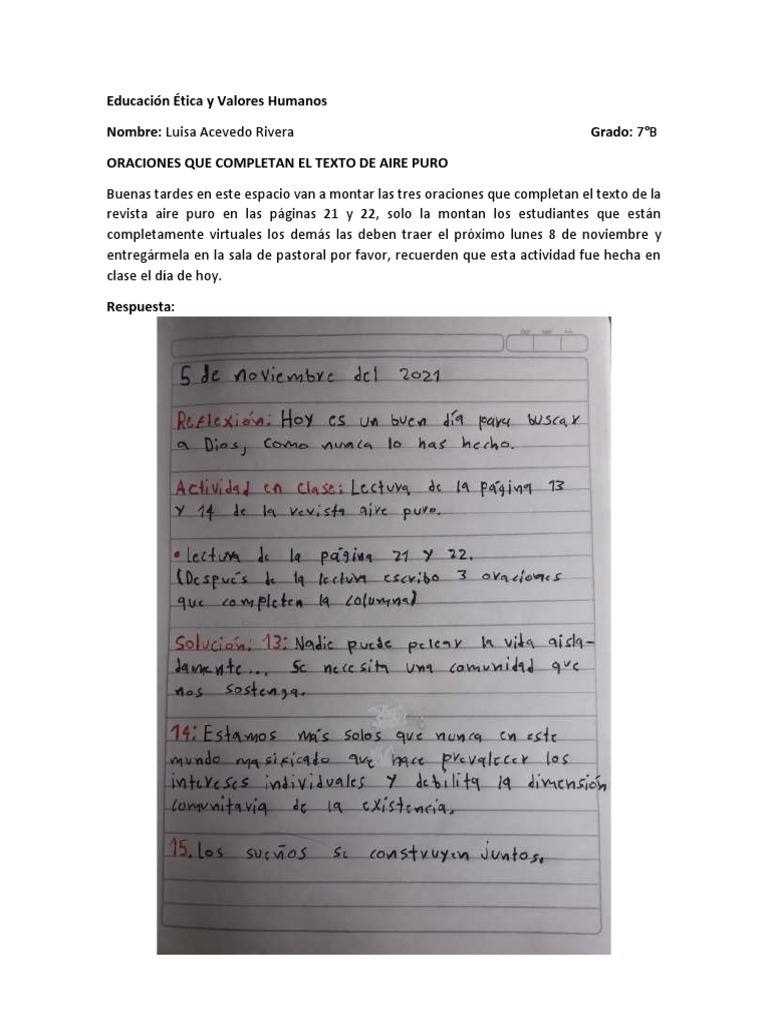 Educación Ética y Valores Humanos
Nombre: Luisa Acevedo Rivera Grado: 7°B
ORACIONES QUE COMPLETAN EL TEXTO DE AIRE PURO
Buenas tardes en este espacio van a montar las tres oraciones que completan el texto de la
revista aire puro en las páginas 21 y 22, solo la montan los estudiantes que están
completamente virtuales los demás las deben traer el próximo lunes 8 de noviembre y
entregármela en la sala de pastoral por favor, recuerden que esta actividad fue hecha en
clase el día de hoy.
Respuesta:
5 de noviembre del 2021
Reflexión: Hoy es un buen día para buscar
a Dios, como nunca lo has hecho.
Actividad en clase: Lectura de la página 13
y 14 de la revista aire puro.
• lectura de la página 21 y 22.
(Después de la lectura escribo 3 oraciones
que completen la columna)
Solución: 13: Nadie puede pelear la vida aisla-
damente... Se necesita una comunidad que
nos sostenga.
14: Estamos más solos que nunca en este
mundo masificado que hace prevalecer los
intereses individuales y debilita la dimensión
comunitaria de la existencia.
15. Los sueños se construyen juntos.